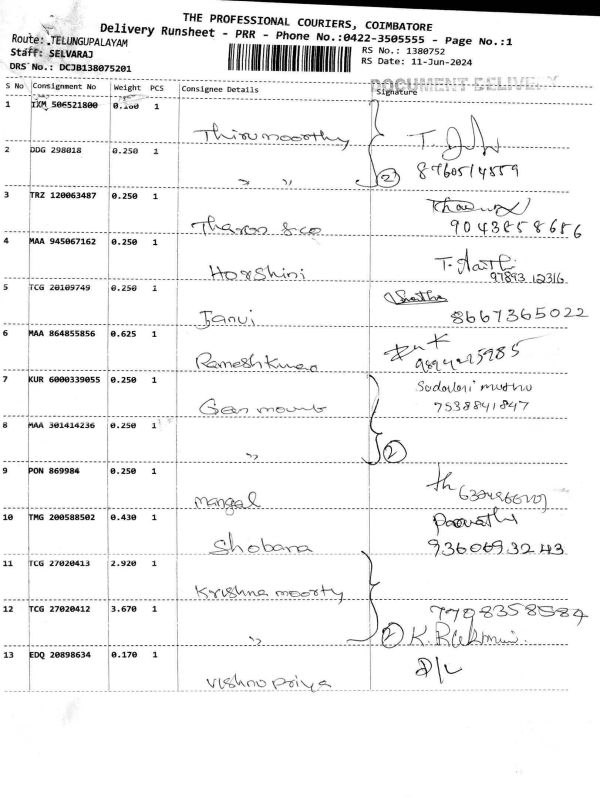 THE PROFESSIONAL COURIERS, COIMBATORE
Delivery Runsheet - PRR - Phone No.:0422-3505555 - Page No.:1
Route: TELUNGUPALAYAM
Staff: SELVARAJ
DRS No.: DCJB138075201
RS No.: 1380752
RS Date: 11-Jun-2024
DOCUMENT DELIVERY
S No Consignment No Weight PCS Consignee Details Signature
1 IXM 506521800 0.100 1
Thirumoorthy
2 DDG 298018 0.250 1
" " 2 8760514559
3 TRZ 120063487 0.250 1
Tharun & co 9043858686
4 MAA 945067162 0.250 1
Harshini T. Aarthi
97893 12316
5 TCG 20109749 0.250 1
Janvi 8667365022
6 MAA 864855856 0.625 1
Rameshkumar
7 KUR 6000339055 0.250 1
Gen mount
7538841847
8 MAA 301414236 0.250 1
" 2
9 PON 869984 0.250 1
mangal
10 TMG 200588502 0.430 1
Shobana 9360693243
11 TCG 27020413 2.920 1
Krishna moorty
12 TCG 27020412 3.670 1 7708358584
" 2 K. Rukmani
13 EDQ 20898634 0.170 1 D/L
Vishnu priya